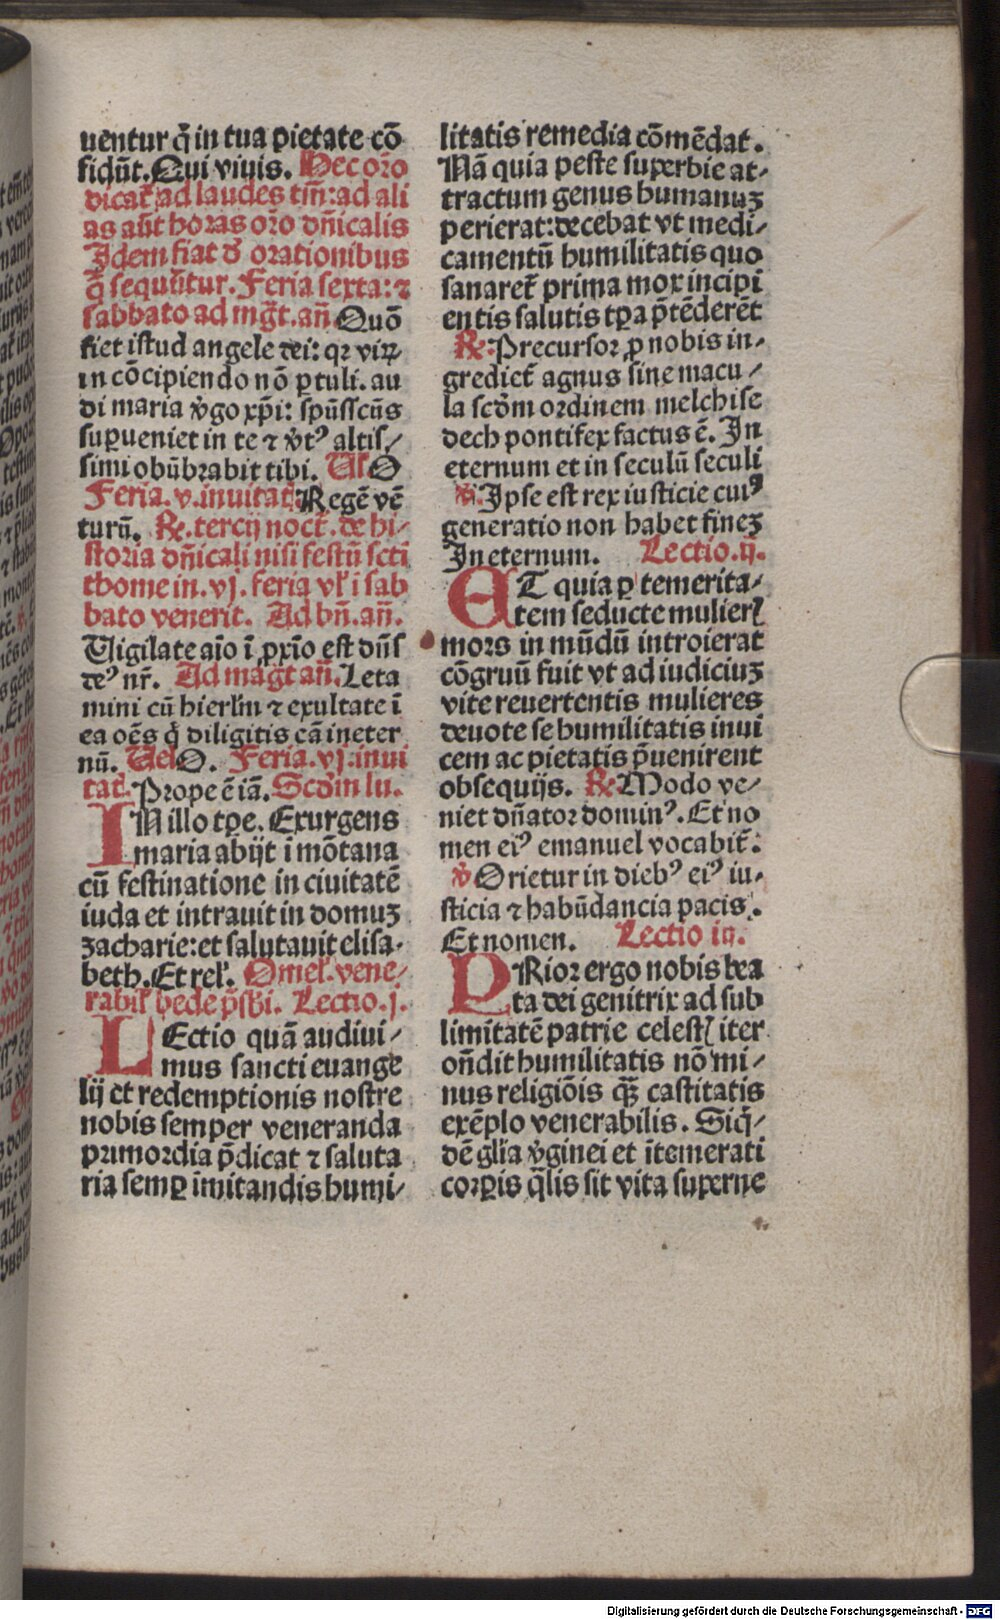 uentur q̄ in tua pietate cō
fidūt. Qui viuis. Hec orō
dicat̄ ad laudes tm̄: ad ali
as aūt horas orō dn̄icalis
Idem fiat d̄ orationibus
q̄ sequūtur. Feria sexta: ⁊
sabbato ad mḡt. an̄. Quō
fiet istud angele dei: qꝛ virꝝ
in cōcipiendo nō ꝑtuli. au
di maria v̄go xp̄i: spūsscūs
suꝑueniet in te ⁊ v̄tꝰ altis⸗
simi obūbrabit tibi. Ul̓ O
Feria. v. inuitat̄. Regē vē
turū. ℞. tercij noct̄. de hi⸗
storia dn̄icali nisi festū scti
thome in. vj. feria vl̓ i sab
bato venerit. Ad bn̄. an̄.
Uigilate aīo ī ꝓxīo est dn̄s
deꝰ nr̄. Ad maḡt an̄. Leta
mini cū hierl̄m ⁊ exultate ī
ea oēs q̄ diligitis eā ineter
nū. Uel O. Feria. vj. inui
tat̄. Prope ē iā. Scd̄m lu.
IN illo tꝑe. Exurgens
maria abijt ī mōtana
cū festinatione in ciuitatē
iuda et intrauit in domuꝫ
zacharie: et salutauit elisa⸗
beth. Et rel̓. Omel̓. vene⸗
rabil̓ bede p̄sb̄i. Lectio. j.
LEctio quā audiui⸗
mus sancti euange
lij et redemptionis nostre
nobis semper veneranda
primordia p̄dicat ⁊ saluta
ria semꝑ imitandis humi⸗
litatis remedia cōmēdat.
Nā quia peste superbie at⸗
tractum genus humanuꝫ
perierat: decebat vt medi⸗
camentū humilitatis quo
sanaret̄ prima mox incipi
entis salutis tꝑa p̄tēderēt
℞. Precursor ꝓ nobis in⸗
grediet̄ agnus sine macu⸗
la scd̄m ordinem melchise
dech pontifex factus ē. In
eternum et in seculū seculi
℣. Ipse est rex iusticie cuiꝰ
generatio non habet fineꝫ
In eternum. Lectio. ij.
ET quia ꝑ temerita⸗
tem seducte mulierꝭ
mors in mūdū introierat
cōgruū fuit vt ad iudiciuꝫ
vite reuertentis mulieres
deuote se humilitatis inui
cem ac pietatis p̄uenirent
obsequijs. ℞. Modo ve⸗
niet dn̄ator dominꝰ. Et no
men eiꝰ emanuel vocabit̄:
℣ Orietur in diebꝰ eiꝰ iu⸗
sticia ⁊ habūdancia pacis.
Et nomen. Lectio iij.
PRior ergo nobis bea
ta dei genitrix ad sub
limitatē patrie celestꝭ iter
on̄dit humilitatis nō mi⸗
nus religiōis qꝫ̄ castitatis
exēplo venerabilis. Siq̄⸗
dē gl̄ia v̄ginei et ītemerati
corꝑis q̄lis sit vita superne
Digitalisierung gefördert durch die Deutsche Forschungsgemeinschaft - DFG